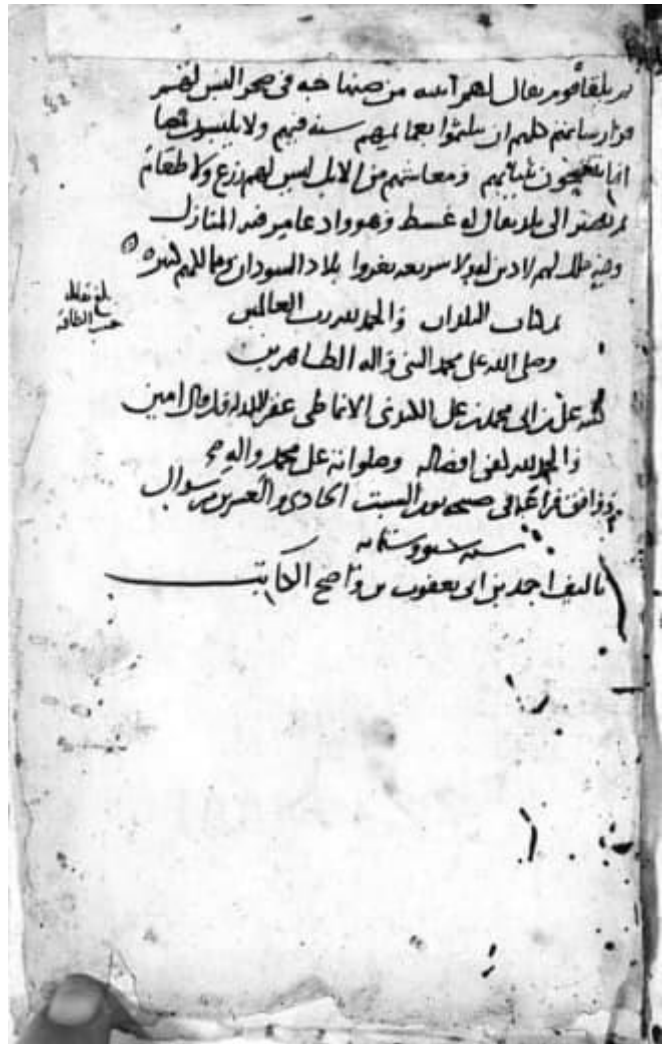 ثم يلقاه قوم يقال لهم انبيه من صنهاجه في صحرا ليس لهم
قرار شانهم كلهم ان يتلثموا بعمايمهم سنه فيهم ولا يلبسون قمصا
انما يتشحون بثيابهم ومعاشهم من الابل ليس لهم زرع ولا طعام
ثم يصير الى بلد يقال له غسط وهو واد عامر فيه المنازل
وفيه ملك لهم لا دين له ولا شريعه يغزوا بلاد السودان وممالكهم كثيره
بلغ مقابله
حسب الطاقه
تم كتاب البلدان والحمد لله رب العالمين
وصلى الله على محمد النبي واله الطاهرين
كتبه علي بن ابي محمد بن علي الانماطي غفر الله له ولمن قال امين
والحمد لله افضاله وصلواته على محمد واله
ووافق فراغه في صبيحه يوم السبت الحادي والعشرين من شوال
سنه وستمايه
تاليف احمد بن ابي يعقوب بن واضح الكاتب